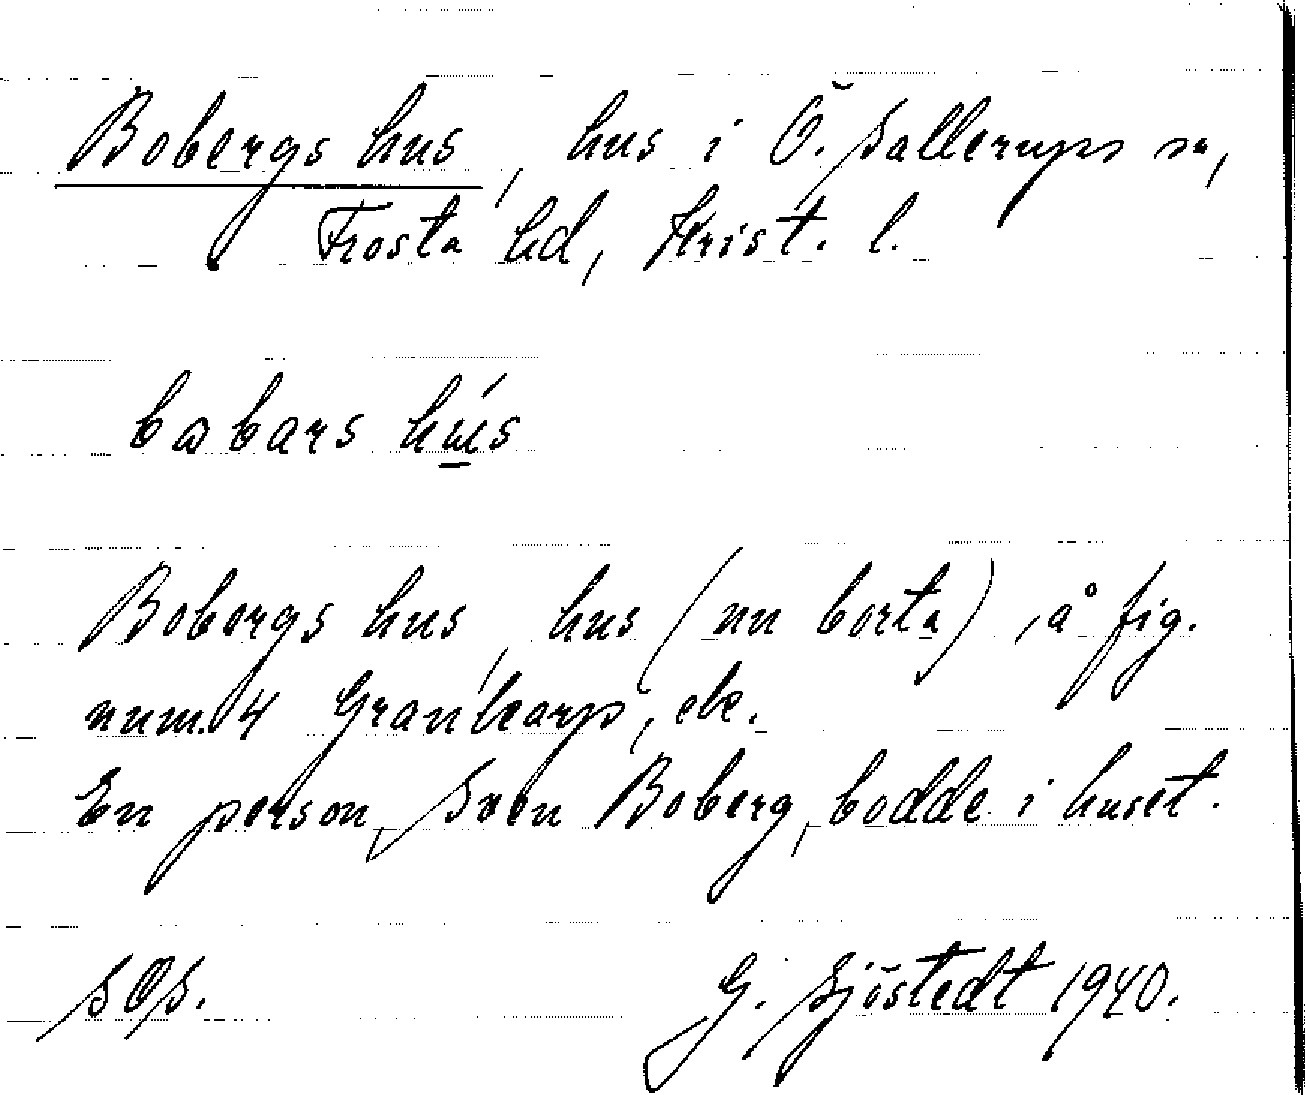 Bobergs hus, hus i Ö. Sallerups sn,
Frosta hd, Krist. l.
bobars hús
Bobergs hus, hus (nu borta), å fig.
num. 4 Grankarp, ek.
En person, Sven Boberg, bodde i huset.
SOS.
G. Sjöstedt 1940.